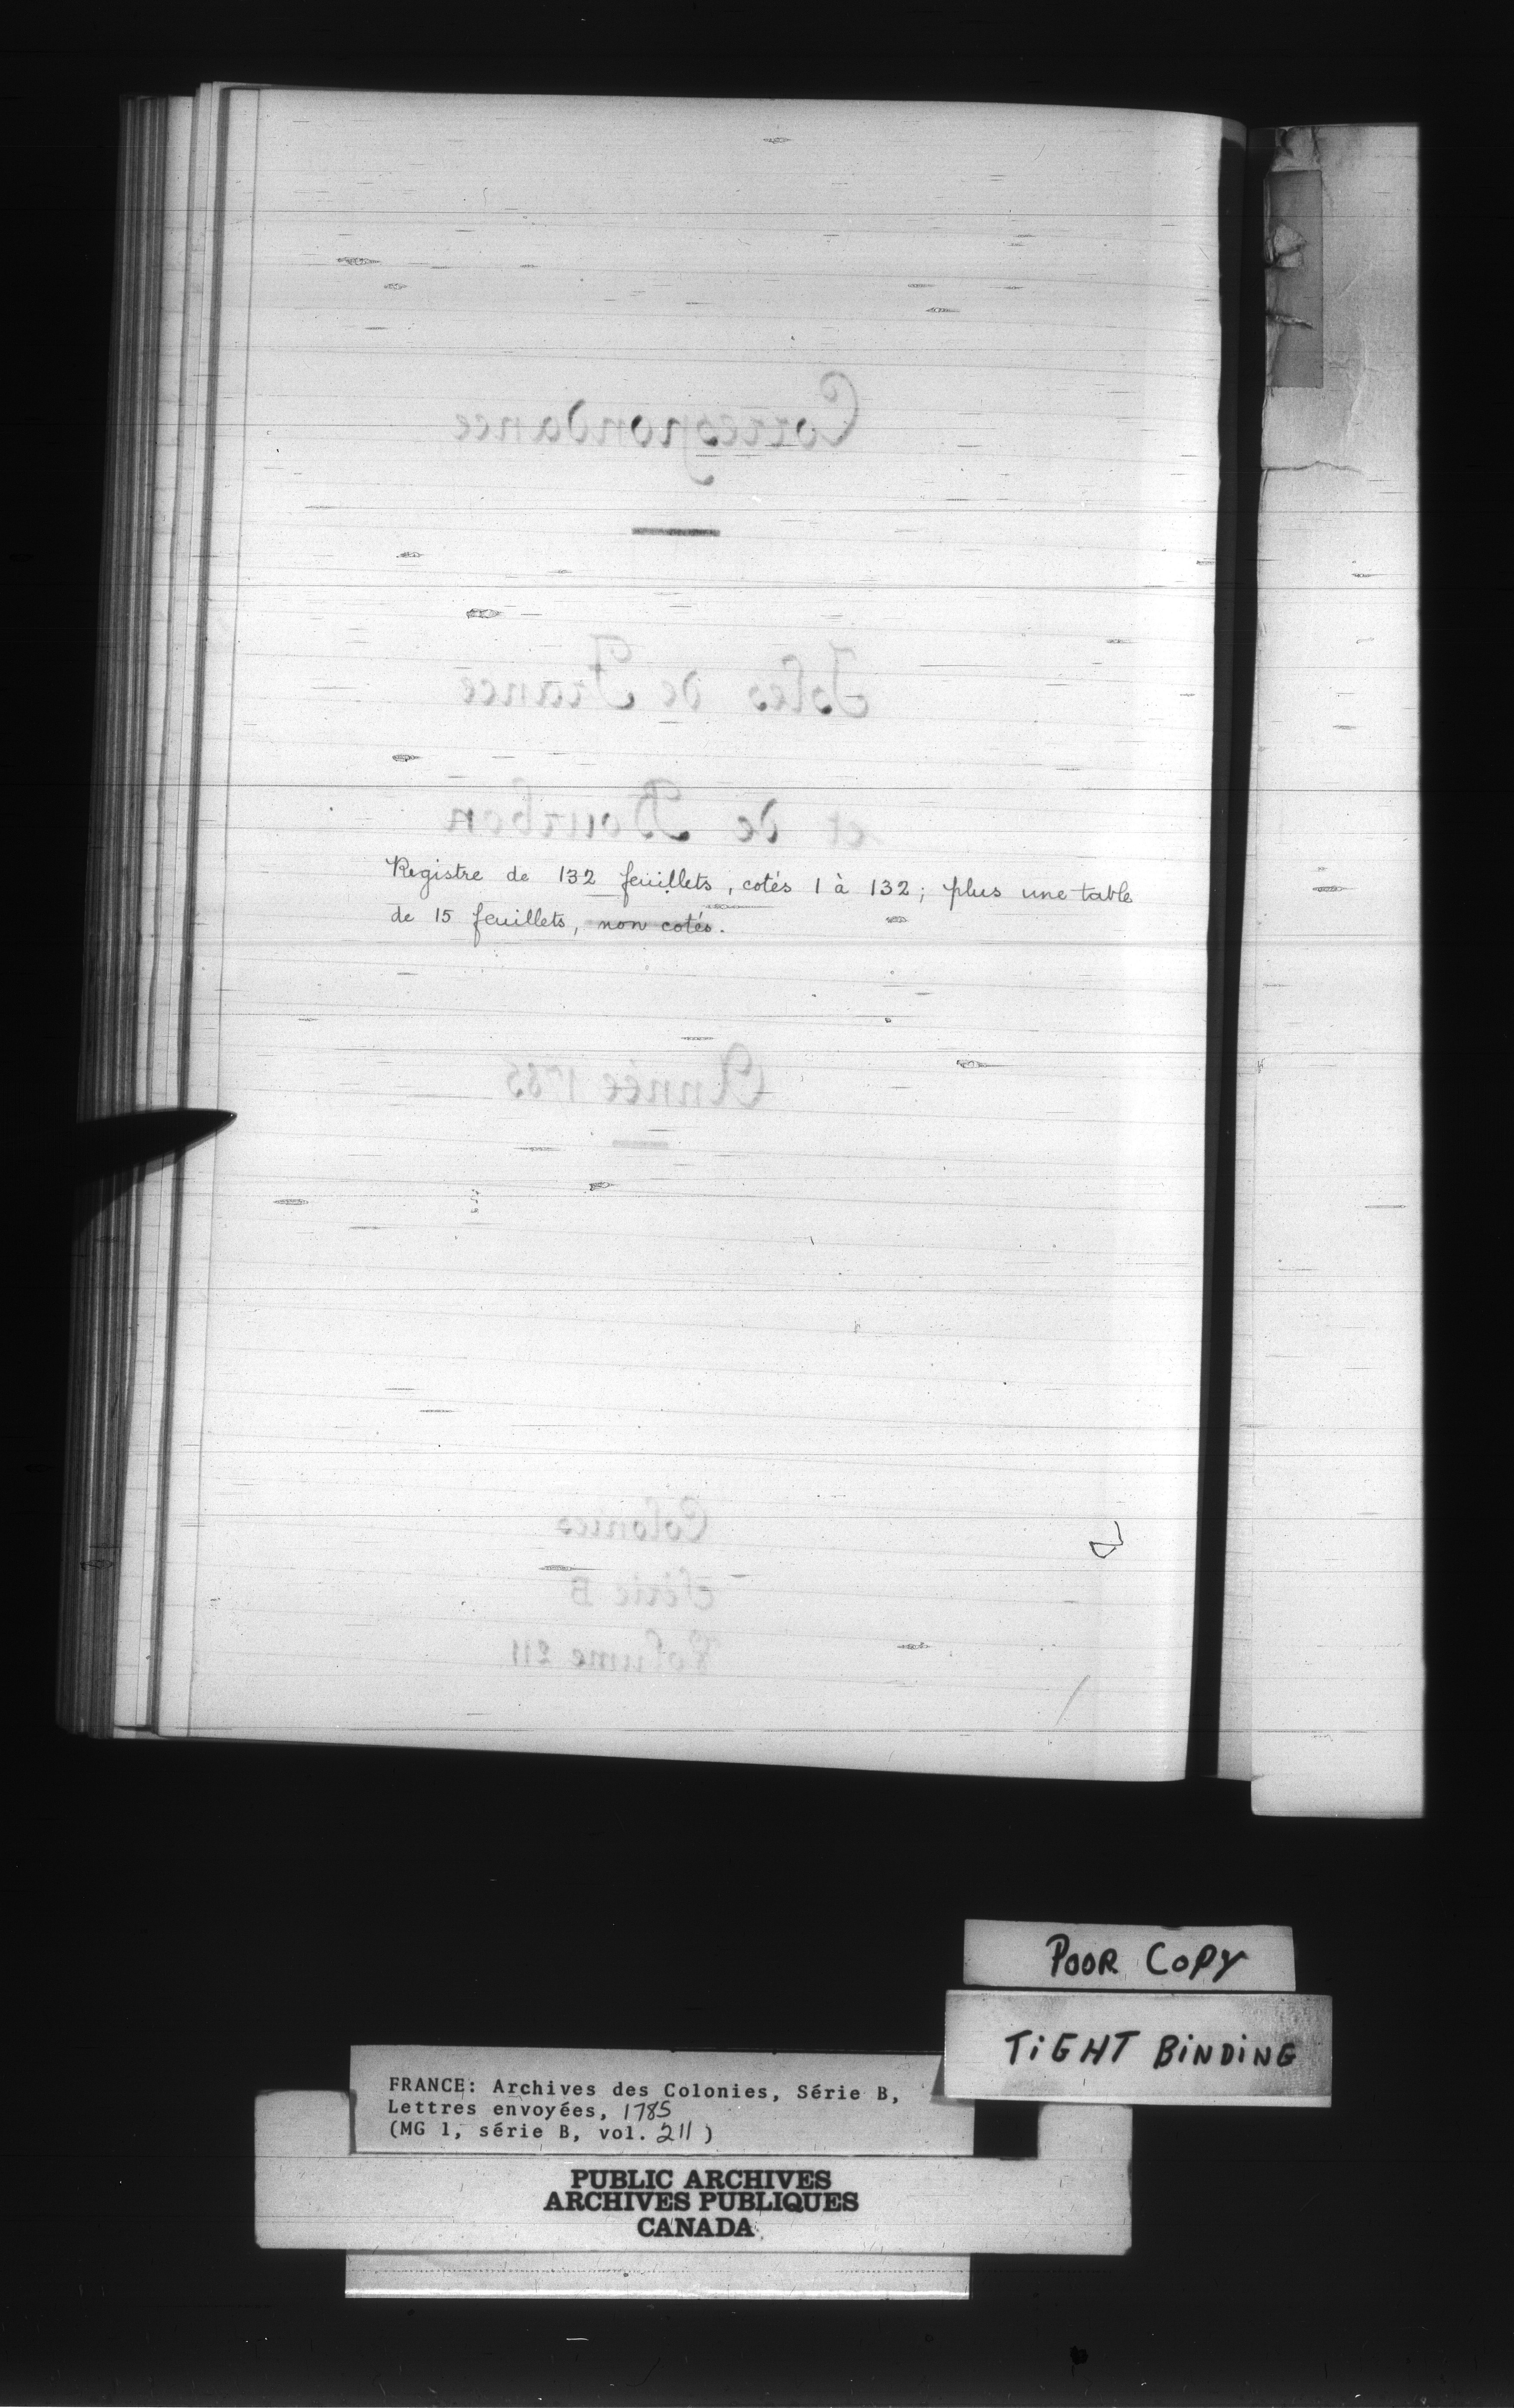 Correspondance
Isles de France
et de Bourbon
Registre de 132 feuillets, cotés 1 à 132; plus une table
de 15 feuillets, non cotés.
Année 1785
Colonies
Série B
Volume 211
POOR COPY
TIGHT BINDING
FRANCE: Archives des Colonies, Série B,
Lettres envoyées, 1785
(MG 1, série B, vol. 211)
PUBLIC ARCHIVES
ARCHIVES PUBLIQUES
CANADA